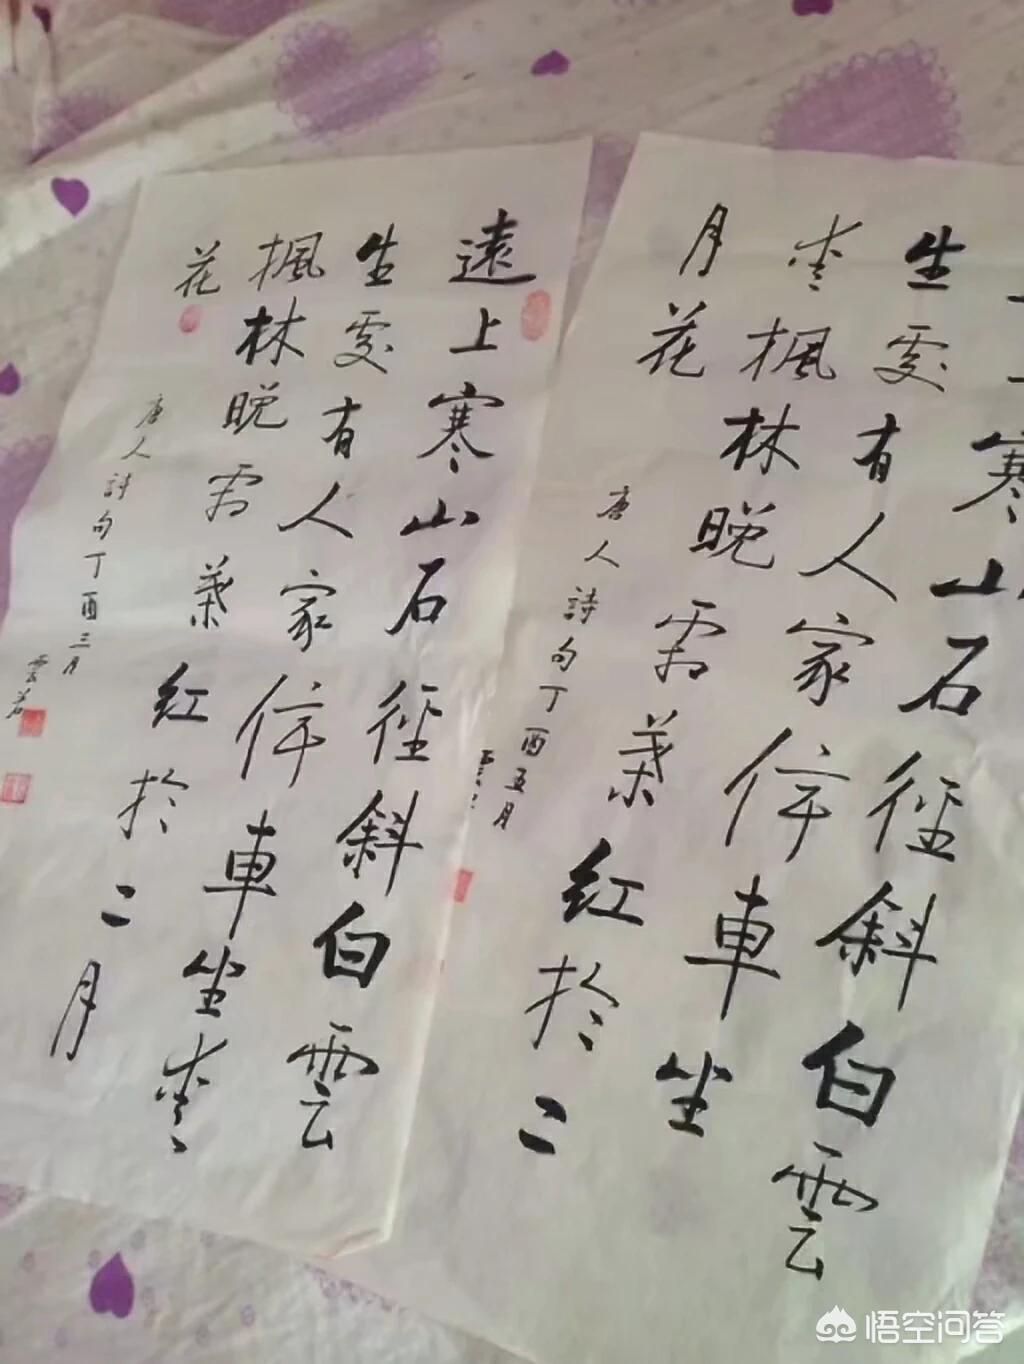 遠上寒山石徑斜白雲
生處有人家停車坐愛
楓林晚霜葉红於二月
花
唐人詩句丁酉三月
雲若
寒山石徑斜白雲
生處有人家停車坐
愛楓林晚霜葉红於二
月花
唐人詩句丁酉五月
悟空问答